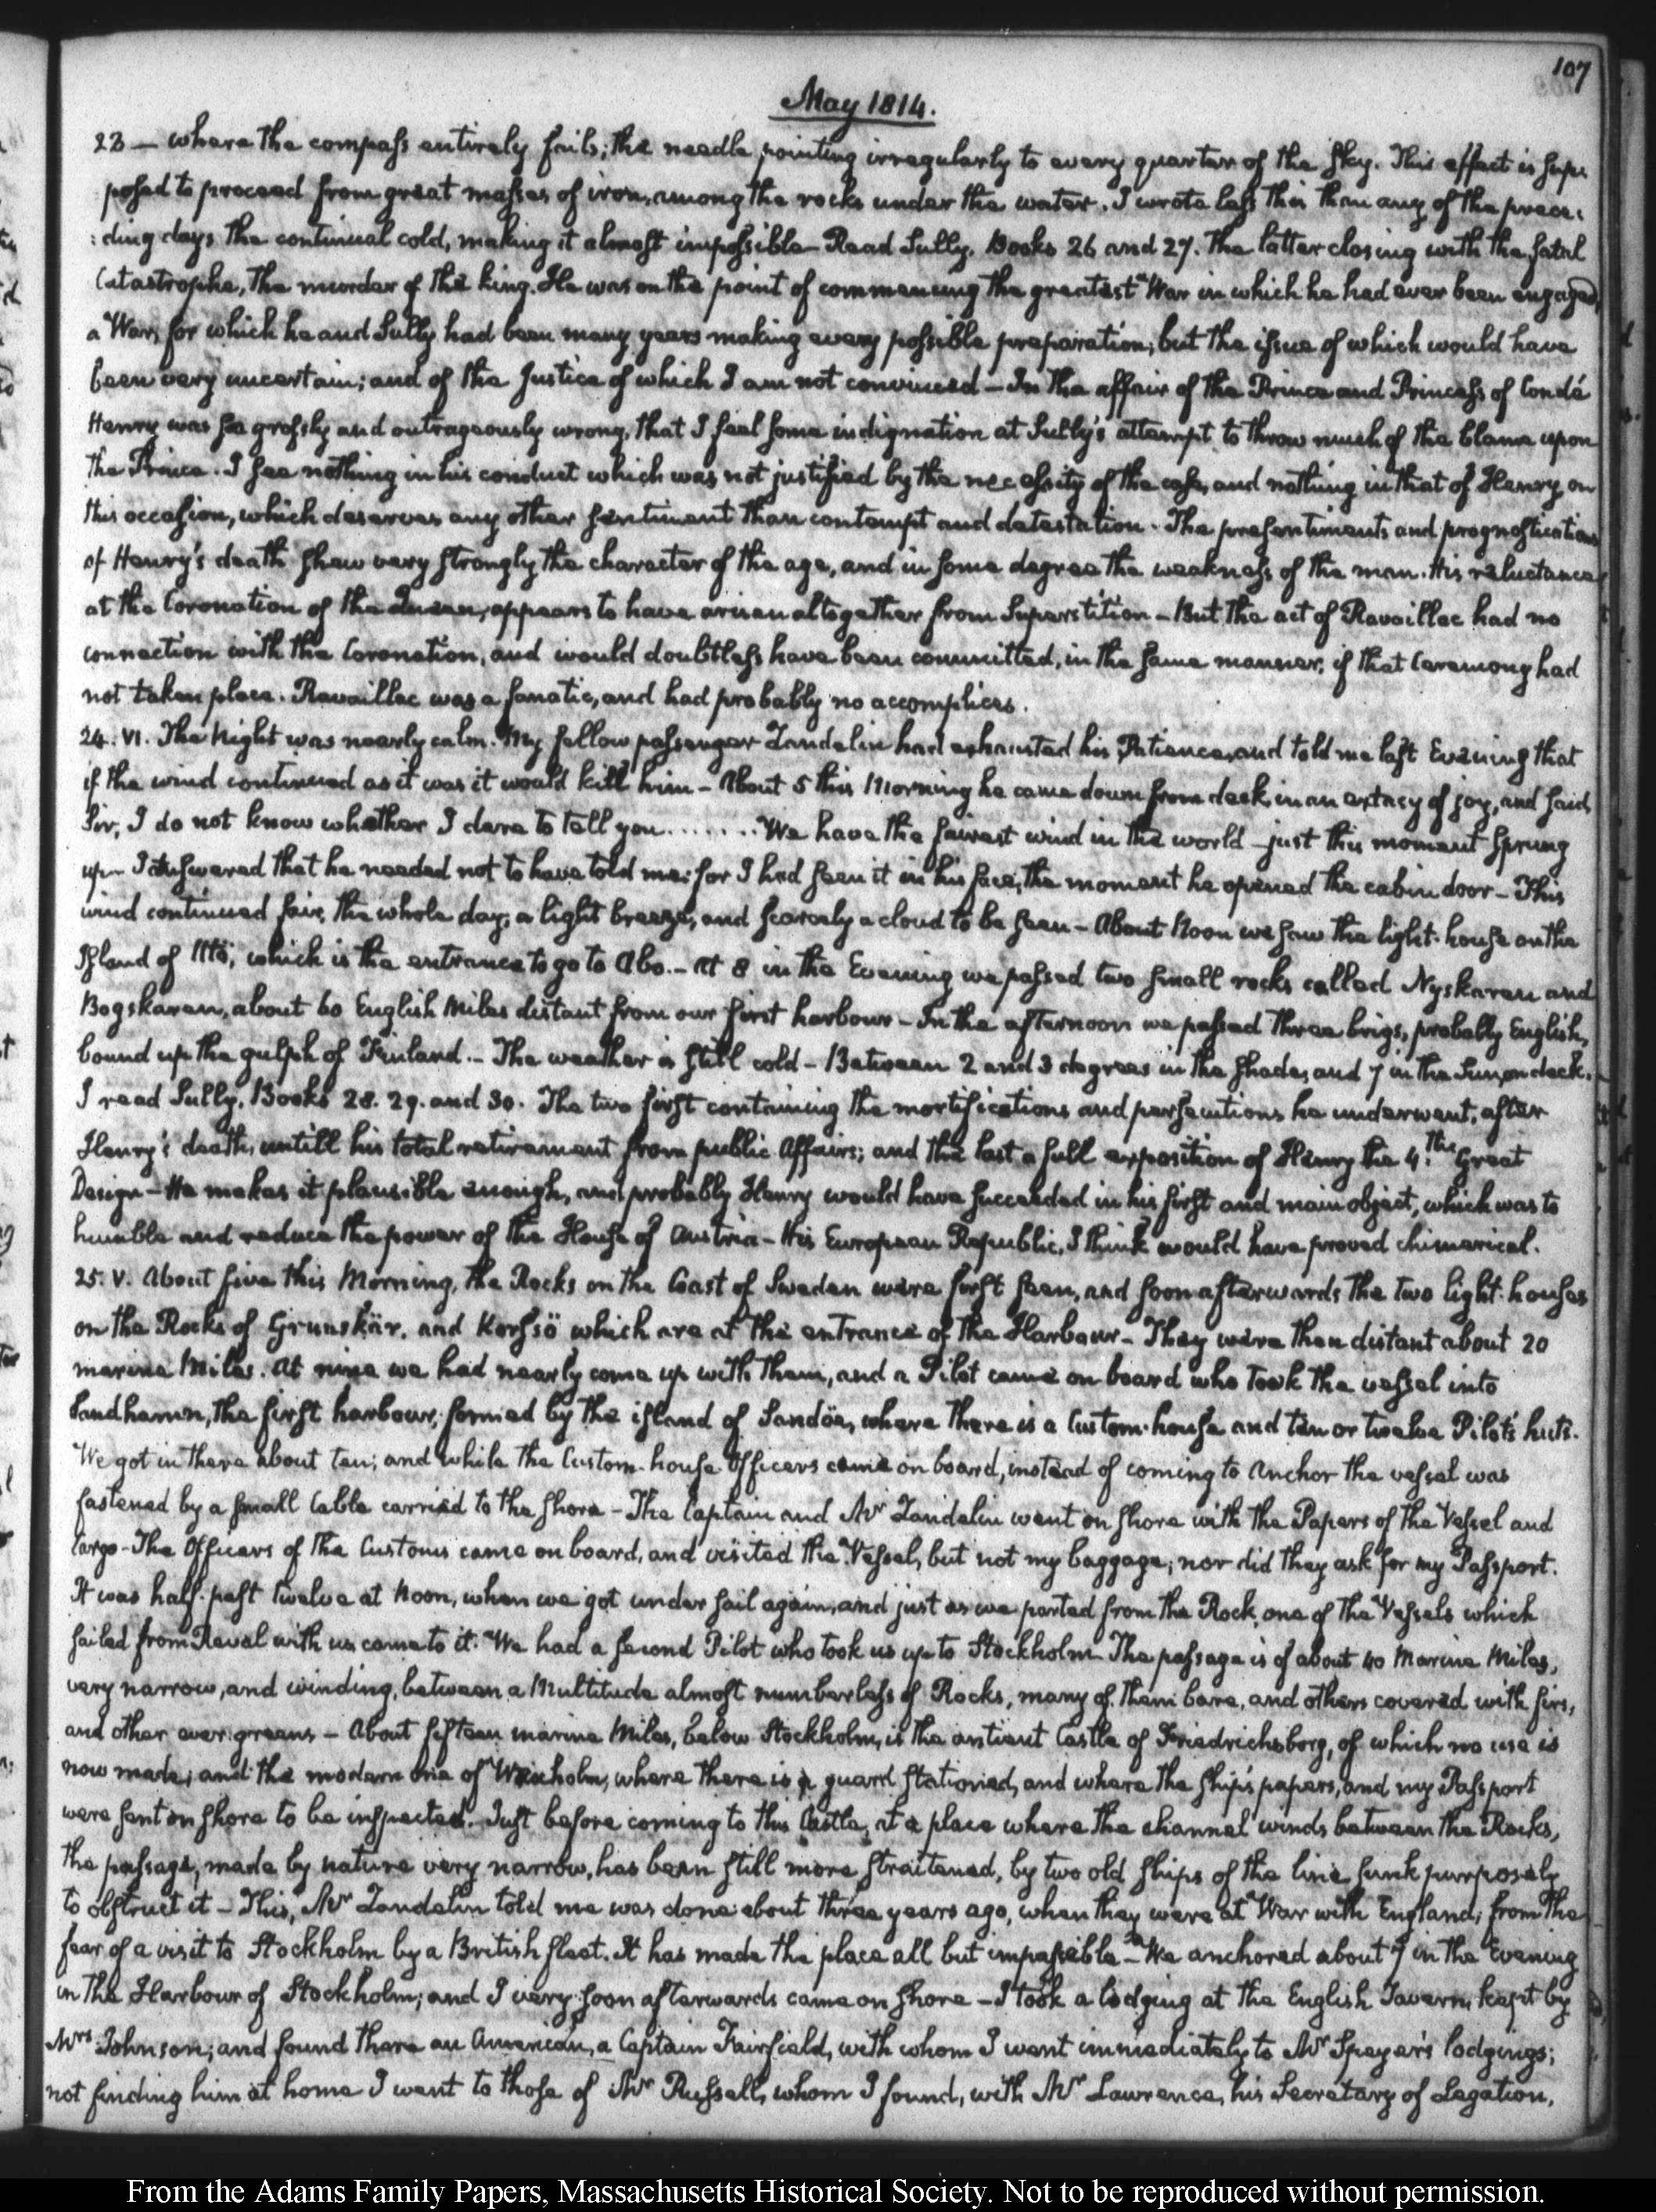 107
May 1814.
23 — where the compass entirely fails; the needle pointing irregularly to every quarter of the sky. This effect is sup:
posed to proceed from great masses of iron, among the rocks under the water. I wrote less this than any of the prece:
:ding days the continual cold, making it almost impossible — Read Sully. Books 26 and 27. The latter closing with the fatal
Catastrophe, the murder of the king. He was on the point of commencing the greatest War in which he had ever been engaged,
a War, for which he and Sully had been many years making every possible preparation; but the issue of which would have
been very uncertain; and of the Justice of which I am not convinced — In the affair of the Prince and Princess of Condé
Henry was so grossly and outrageously wrong, that I feel some indignation at Sully's attempt to throw much of the blame upon
the Prince. I see nothing in his conduct which was not justified by the necessity of the case, and nothing in that of Henry, on
this occasion, which deserves any other sentiment than contempt and detestation. The presentiments and prognostications
of Henry's death shew very strongly the character of the age, and in some degree the weakness of the man. His reluctance
at the Coronation of the Queen, appears to have arisen altogether from Superstition — But the act of Ravaillac had no
connection with the Coronation, and would doubtless have been committed, in the same manner, if that Ceremony had
not taken place. Ravaillac was a fanatic, and had probably no accomplices.
24. VI. The Night was nearly calm. My fellow passenger Zandelin had exhausted his Patience, and told me last Evening that
if the wind continued as it was it would kill him — About 5 this Morning he came down from deck in an extacy of joy, and said,
Sir, I do not know whether I dare to tell you . . . . . . . We have the fairest wind in the world — just this moment sprung
up — I answered that he needed not to have told me; for I had seen it in his face, the moment he opened the cabin door — This
wind continued fair, the whole day; a light breeze, and scarcely a cloud to be seen — About Noon we saw the light-house on the
Island of Utö, which is the entrance to go to Abo. — At 8 in the Evening we passed two small rocks called Nyskaren and
Bogskaren, about 60 English Miles distant from our first harbour — In the afternoon we passed three brigs, probably English,
bound up the gulph of Finland. — The weather is still cold — Between 2 and 3 degrees in the shade, and 7 in the Sun, on deck.
I read Sully, Books 28. 29. and 30. The two first containing the mortifications and persecutions he underwent, after
Henry's death, untill his total retirement from public Affairs; and the last a full exposition of Henry the 4.th's Great
Design — He makes it plausible enough, and probably Henry would have succeeded in his first and main object, which was to
humble and reduce the power of the House of Austria — His European Republic, I think would have proved chimerical.
25. V. About five this Morning, the Rocks on the Coast of Sweden were first seen, and soon afterwards the two light-houses
on the Rocks of Grunskär, and Korssö which are at the entrance of the Harbour — They were then distant about 20
marine Miles. At nine we had nearly come up with them, and a Pilot came on board who took the vessel into
Sandhamn, the first harbour, formed by the island of Sandön, where there is a Custom-house and ten or twelve Pilot's huts.
We got in there about ten; and while the Custom-house Officers came on board, instead of coming to Anchor the vessel was
fastened by a small Cable carried to the shore — The Captain and Mr Zandelin went on shore with the Papers of the Vessel and
Cargo — The Officers of the Customs came on board, and visited the Vessel, but not my baggage; nor did they ask for my Passport.
It was half-past twelve at Noon, when we got under sail again, and just as we parted from the Rock, one of the Vessels which
sailed from Reval with us came to it. We had a second Pilot who took us up to Stockholm — The passage is of about 40 Marine Miles,
very narrow, and winding, between a Multitude almost numberless of Rocks, many of them bare, and others covered with firs,
and other ever-greens — About fifteen marine Miles, below Stockholm, is the antient Castle of Friedrichsborg, of which no use is
now made; and the modern one of Waxholm, where there is a guard stationed, and where the ship's papers, and my Passport
were sent on shore to be inspected. Just before coming to this Castle, at a place where the channel winds between the Rocks,
the passage, made by nature very narrow, has been still more straitened, by two old ships of the line sunk purposely
to obstruct it — This, Mr Zandelin told me was done about three years ago, when they were at War with England; from the
fear of a visit to Stockholm by a British fleet. It has made the place all but impassible — We anchored about 7 in the Evening
in the Harbour of Stockholm; and I very soon afterwards came on shore — I took a lodging at the English Tavern, kept by
Mrs Johnson; and found there an American, a Captain Fairfield, with whom I went immediately to Mr Speyer's lodgings;
not finding him at home I went to those of Mr Russell, whom I found, with Mr Lawrence, his Secretary of Legation,
From the Adams Family Papers, Massachusetts Historical Society. Not to be reproduced without permission.